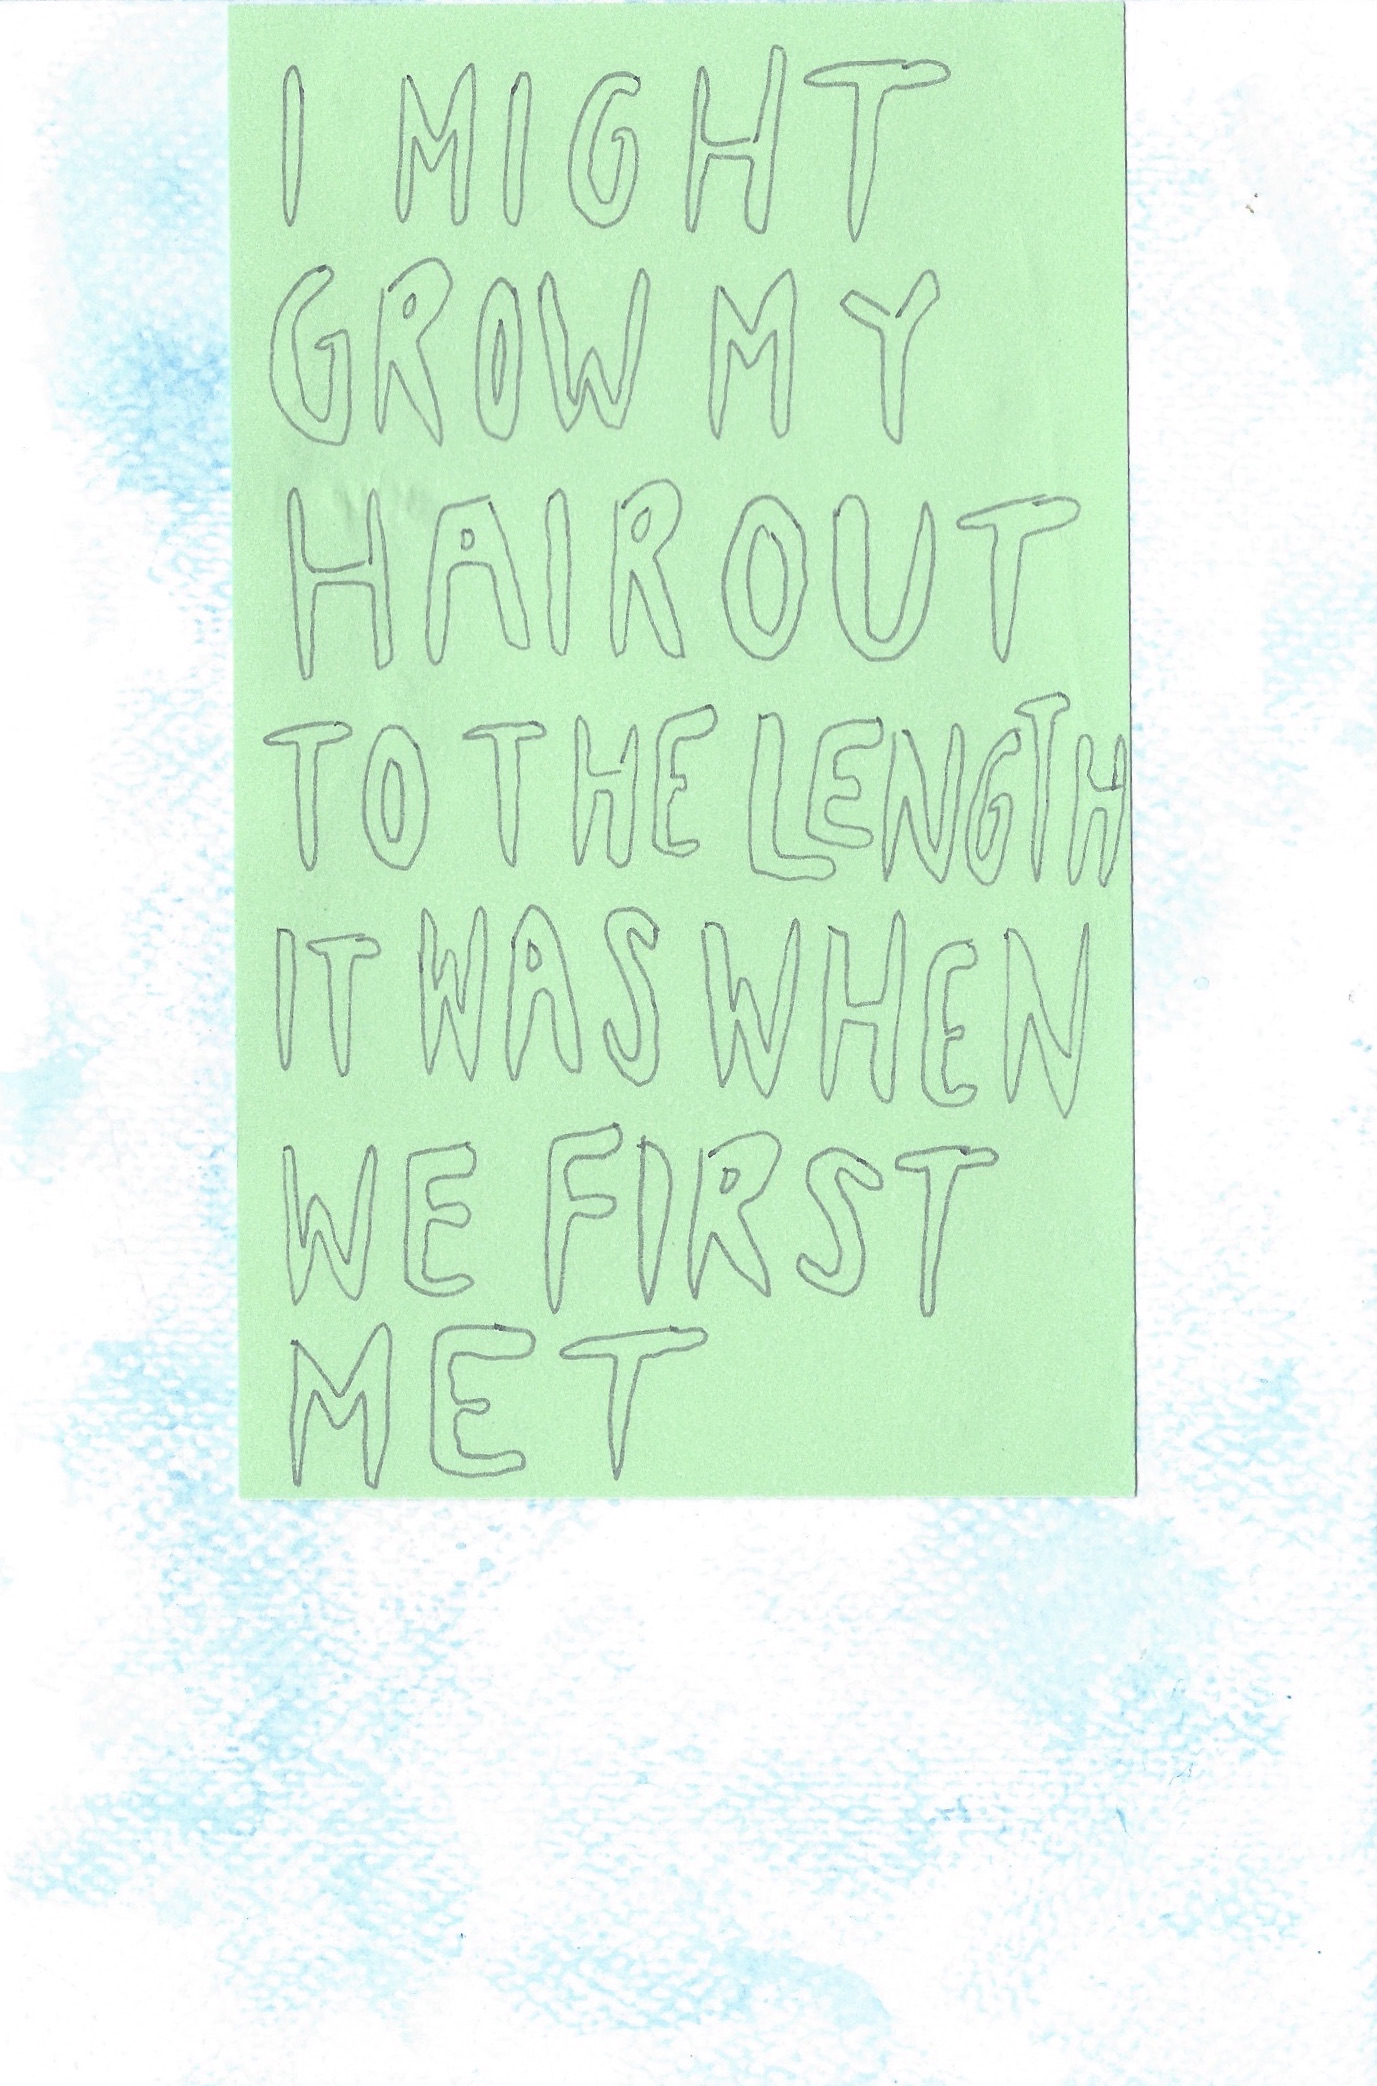 I MIGHT
GROW MY
HAIR OUT
TO THE LENGTH
IT WAS WHEN
WE FIRST
MET